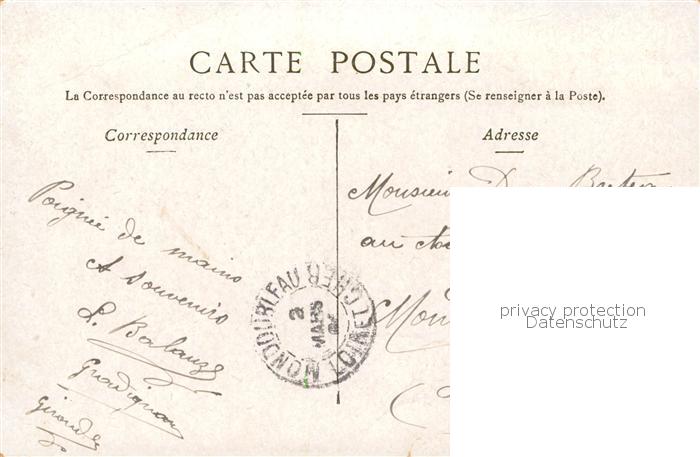 CARTE POSTALE
La Correspondance au recto n'est pas acceptée par tous les pays étrangers (Se renseigner à la Poste).
Correspondance
Adresse
Poignée de mains
et souvenirs
L. Balauze
Gradignan
Gironde
Monsieur
au
MONDOUBLEAU
LOIR ET CHER
2
MARS
privacy protection
Datenschutz